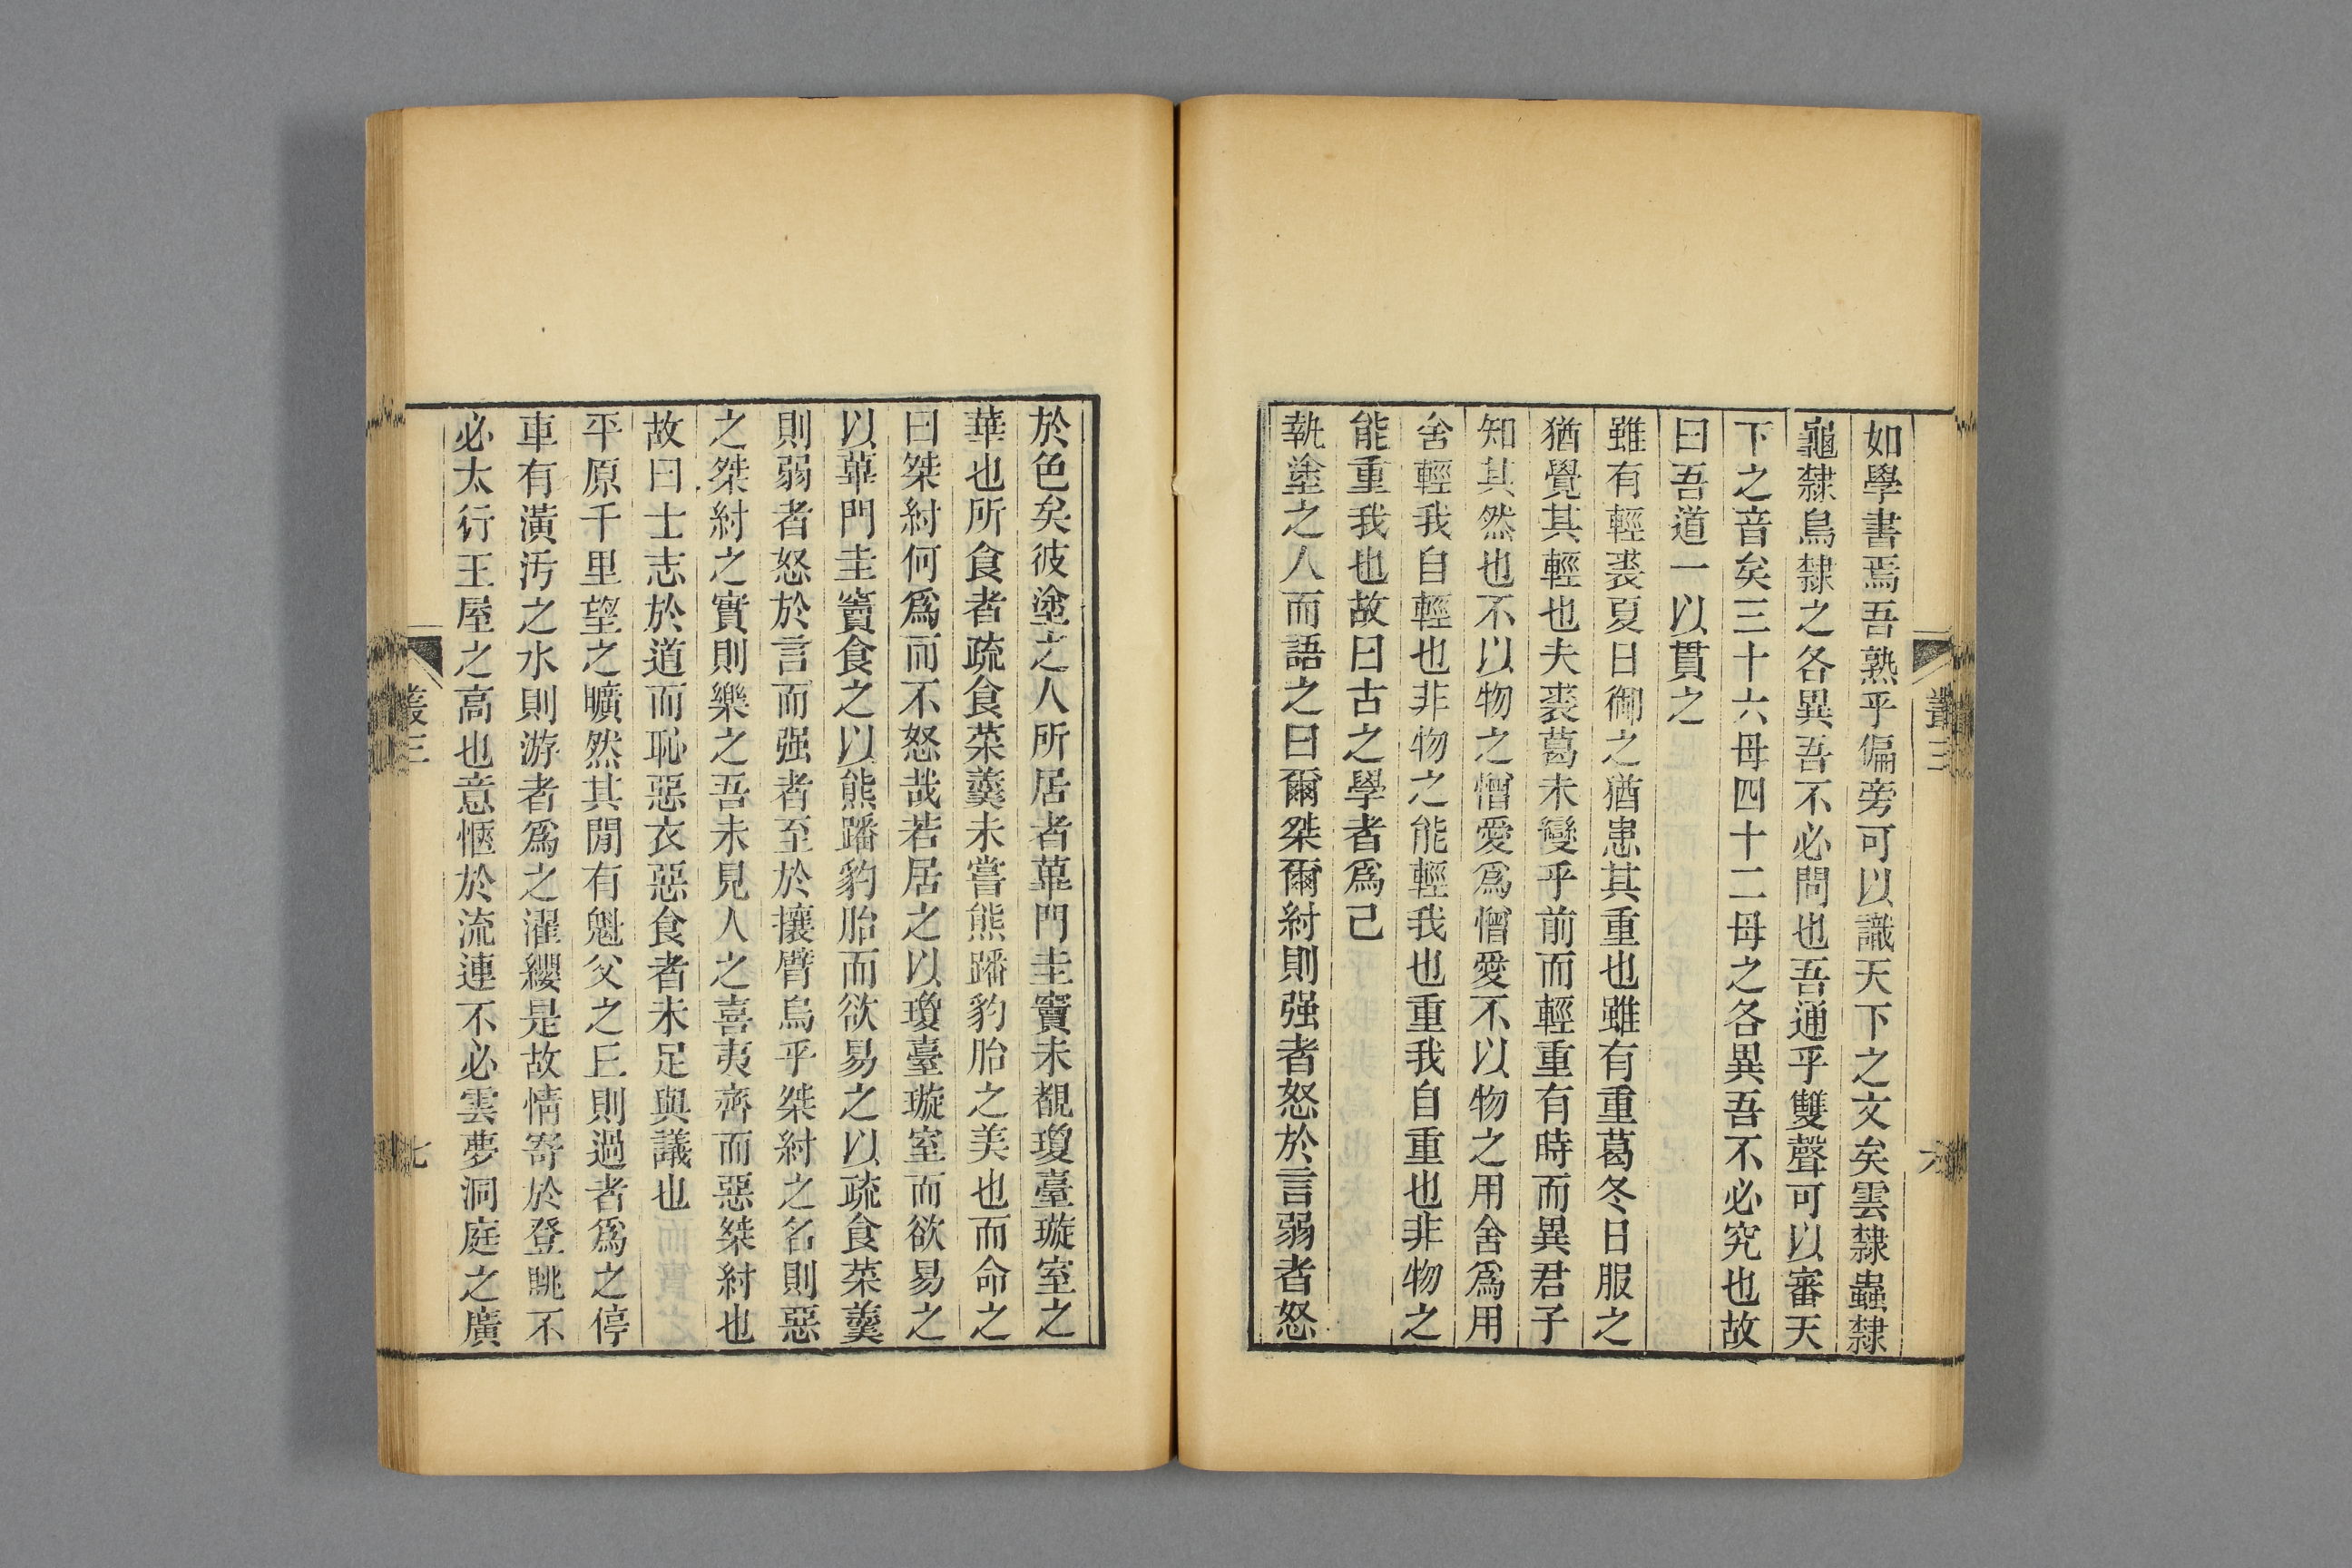 叢三
六
如學書焉吾熟乎偏旁可以識天下之文矣雲隸蟲隸
龜隸鳥隸之各異吾不必問也吾通乎雙聲可以審天
下之音矣三十六母四十二母之各異吾不必究也故
曰吾道一以貫之
雖有輕裘夏日御之猶患其重也雖有重葛冬日服之
猶覺其輕也夫裘葛未變乎前而輕重有時而異君子
知其然也不以物之憎愛爲憎愛不以物之用舍爲用
舍輕我自輕也非物之能輕我也重我自重也非物之
能重我也故曰古之學者爲己
執塗之人而語之曰爾桀爾紂則强者怒於言弱者怒
於色矣彼塗之人所居者蓽門圭竇未覩瓊臺璇室之
華也所食者疏食菜羹未嘗熊蹯豹胎之美也而命之
曰桀紂何爲而不怒哉若居之以瓊臺璇室而欲易之
以蓽門圭竇食之以熊蹯豹胎而欲易之以疏食菜羹
則弱者怒於言而强者至於攘臂烏乎桀紂之名則惡
之桀紂之實則樂之吾未見人之喜夷齊而惡桀紂也
故曰士志於道而恥惡衣惡食者未足與議也
平原千里望之曠然其閒有魁父之丘則過者爲之停
車有潢汚之水則游者爲之濯纓是故情寄於登眺不
必太行王屋之高也意愜於流連不必雲夢洞庭之廣
叢三
七